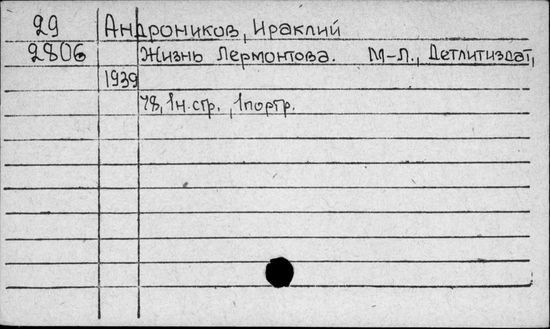 29 Андроников, Ираклий
2806 Жизнь Лермонтова. М-Л., Детлитиздат,
1939
78, 1н.стр., 1портр.